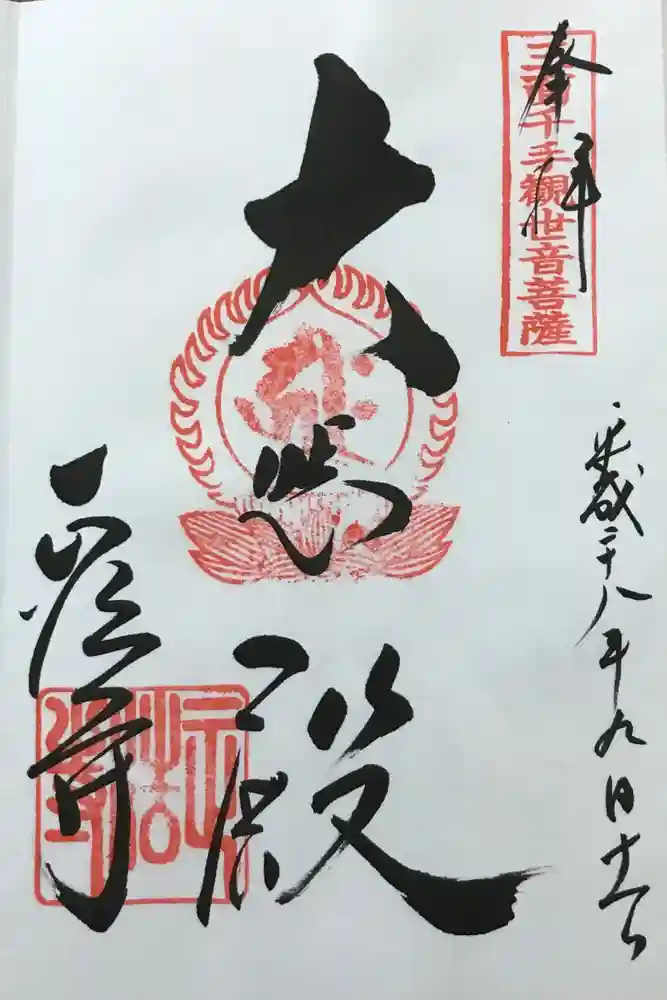 奉拝
三面千手観世音菩薩
平成二十八年九月
大悲殿
寺